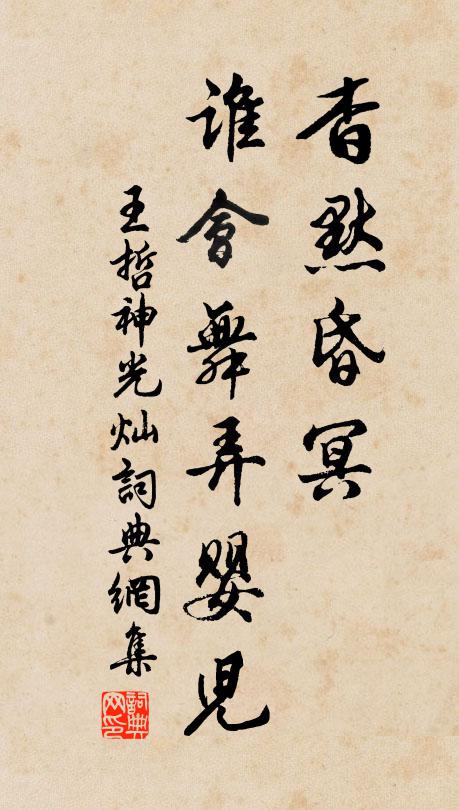 杳黙昏冥
誰會舞弄嬰児
王哲神光灿詞典網集
詞典网印